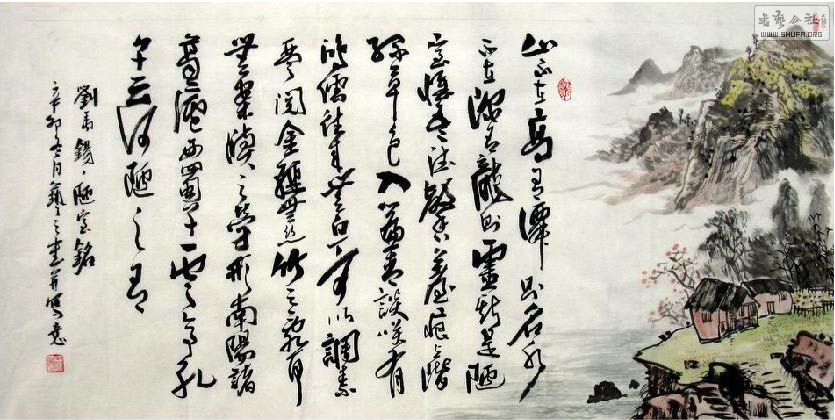 山不在高有僊則名水
不在深有龍則靈斯是陋
室惟吾德馨苔痕上階
綠草色入簾青談笑有
鴻儒往來無白丁可以調素
琴閱金經無絲竹之亂耳
無案牘之勞形南陽諸
葛廬西蜀子雲亭孔
子云何陋之有
劉禹錫·陋室銘
辛卯冬月之書并寫意
书艺公社
WWW.SHUFA.ORG